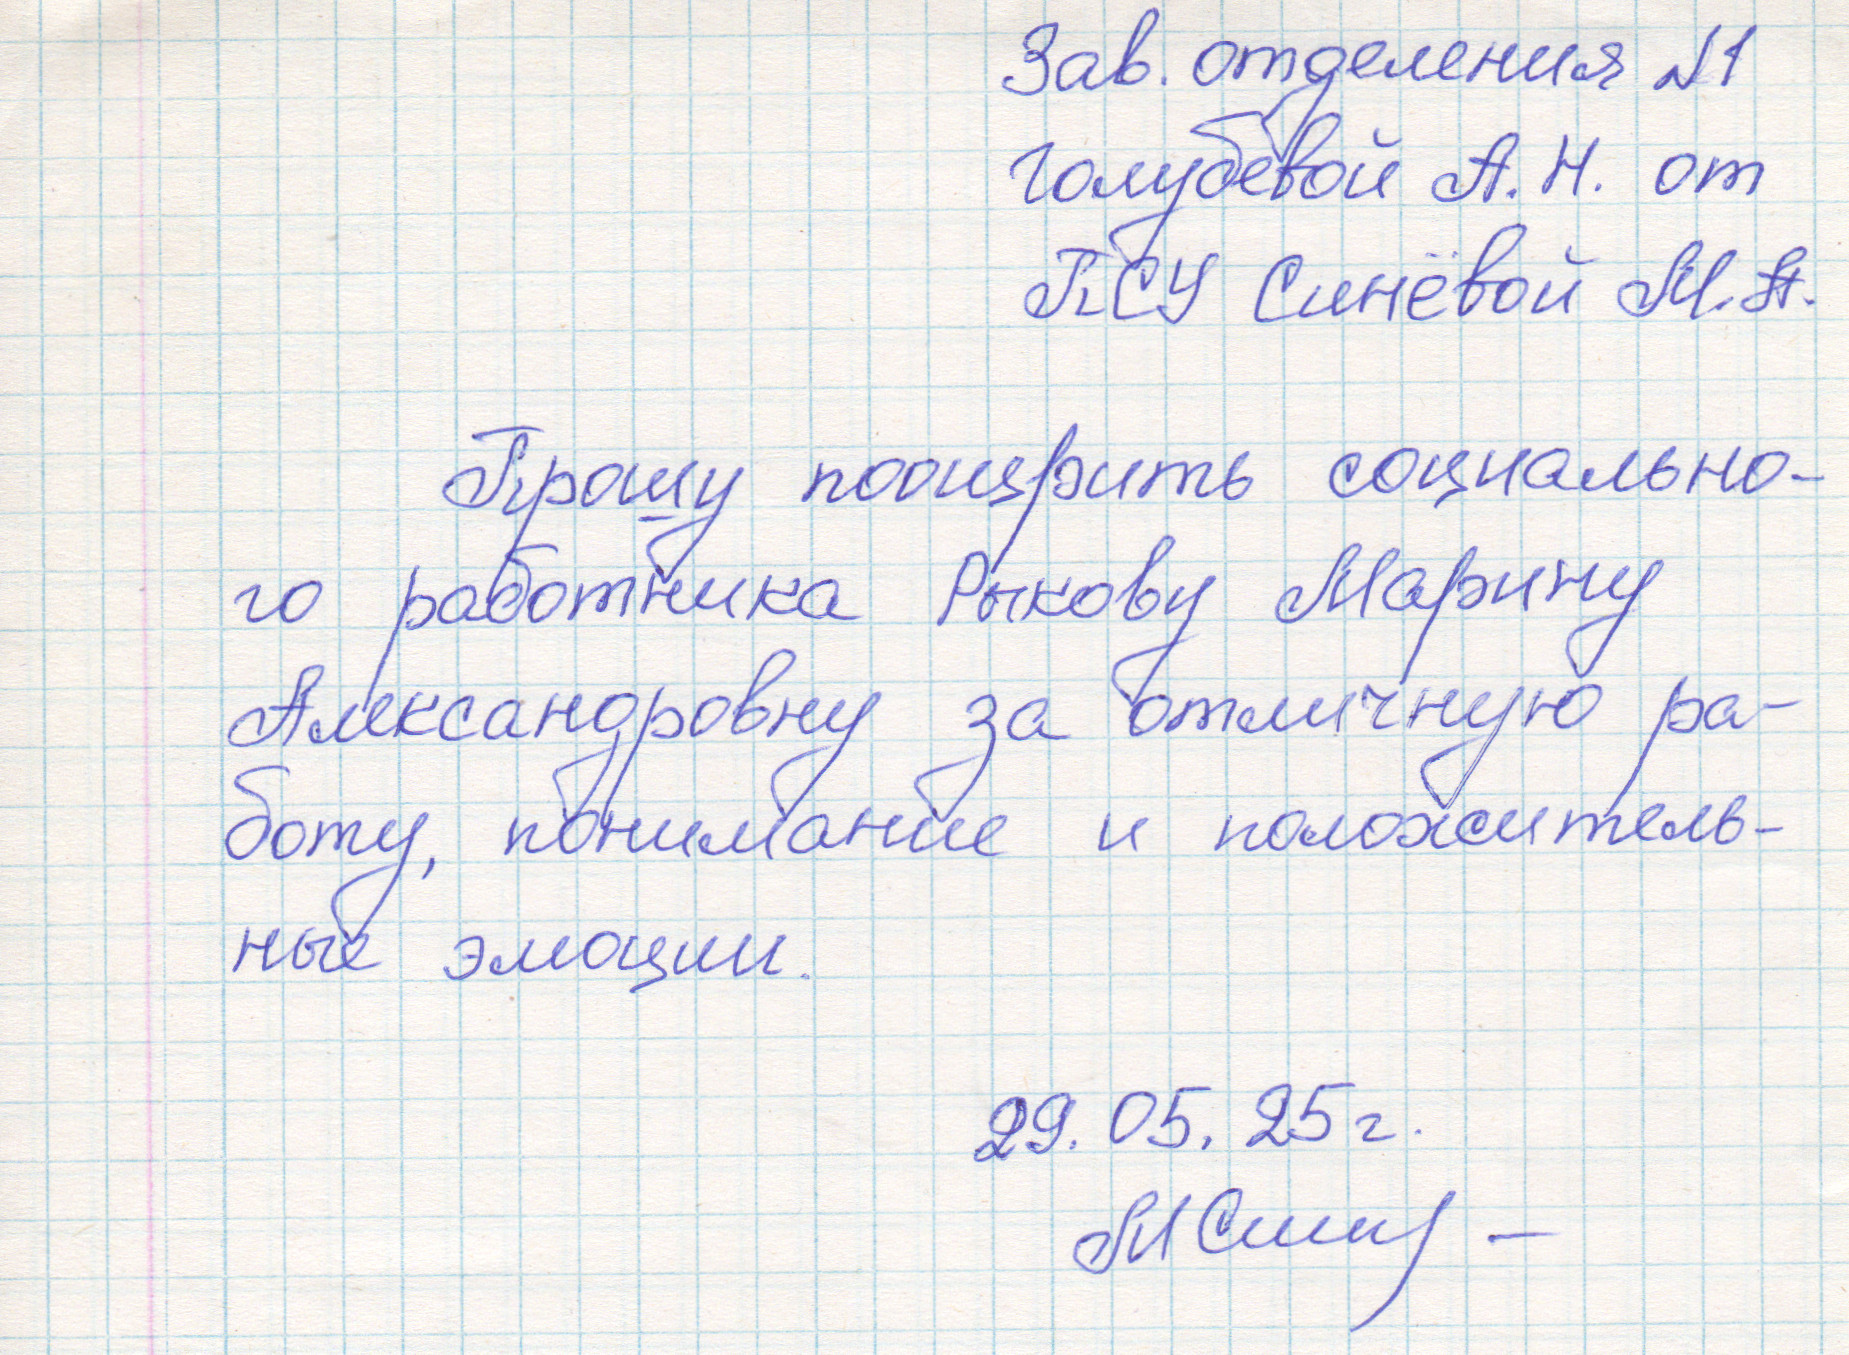 Зав. отделения №1
Голубевой А. Н. от
ПСУ Синёвой М. А.
Прошу поощрить социально-
го работника Рыкову Марину
Александровну за отличную ра-
боту, понимание и положитель-
ные эмоции.
29. 05. 25 г.